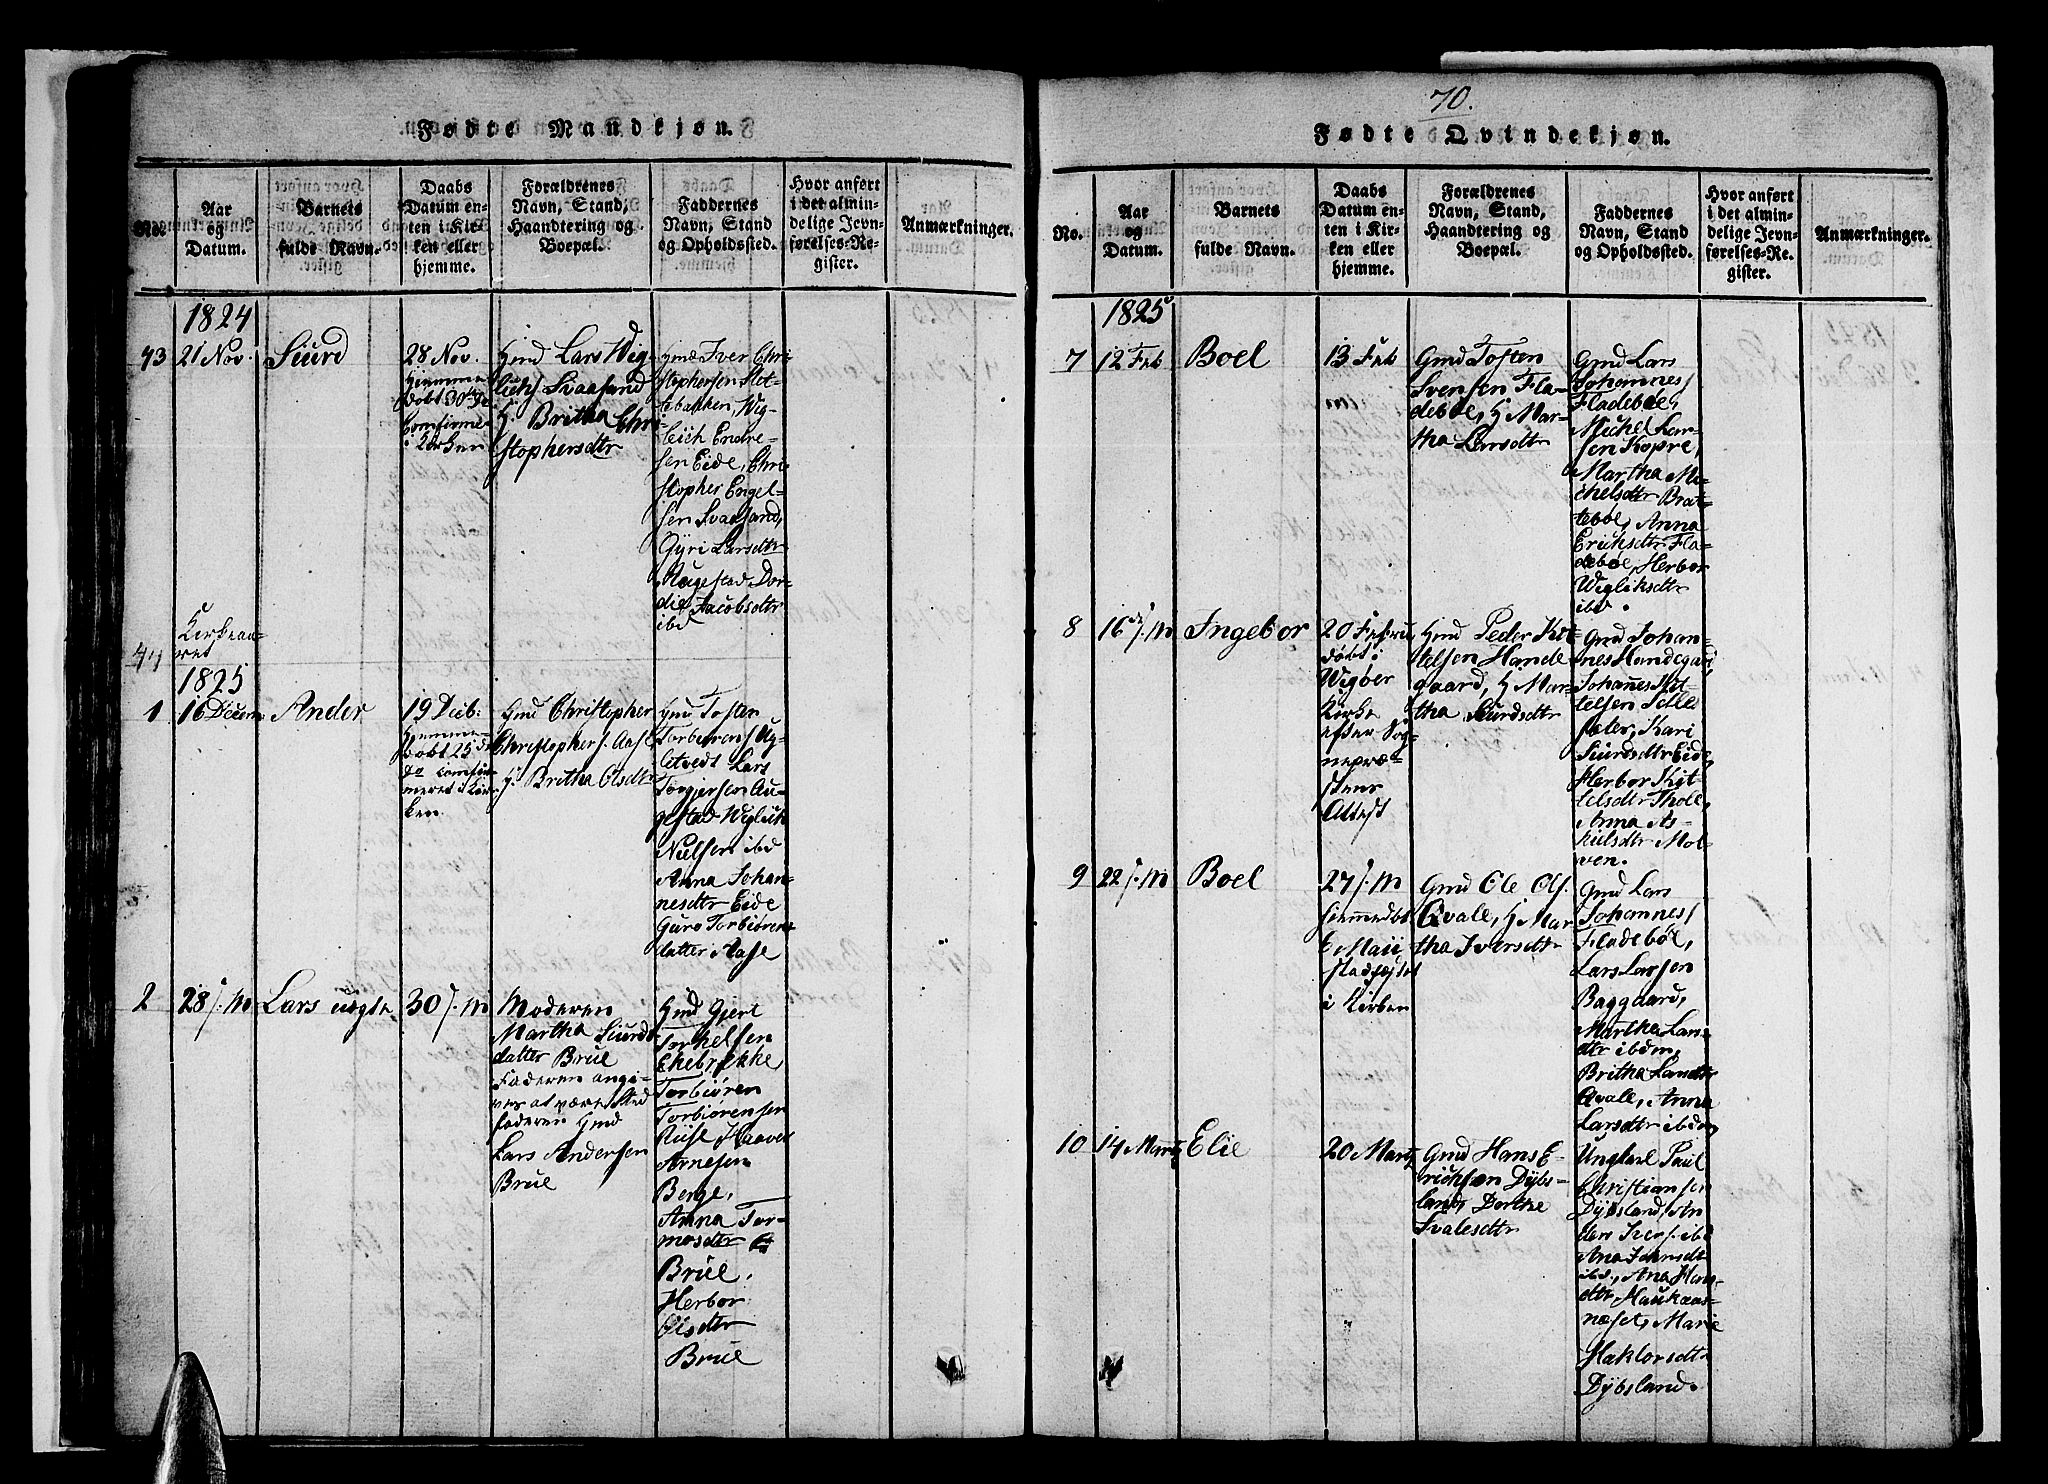 70.
Fødte Mandkjøn.
No.
Aar
og
Datum.
Barnets
fulde Navn.
Daabs
Datum en-
ten i Kir-
ken eller
hjemme.
Forældrenes
Navn, Stand,
Haandtering og
Boepæl.
Faddernes
Navn, Stand
og Opholdssted.
Hvor anført
i det almin-
delige Jevn-
førelses-Re-
gister.
Anmærkninger.
1824
43
21 Nov.
Siurd
28 Nov.
hiemme
døbt 30 de
Comfirme
i Kirken
Gmd Lars Wig-
lichs Svaasand
H. Britha Chri-
stophersdtr
Gmd Iver Chri-
stophersen Slet-
tebakken, Wig-
leich Endre-
sen Eide, Chri-
stopher Engel-
sen Svaasand,
Gyri Larsdtr
Augestad Dor-
die Jacobsdtr
ibd
44
Kirkeaa-
ret
1825
1
16 Decem:
Ander
19 Decb:
hiemme
døbt 25 d
Comfir-
meret i Kir-
ken
Gmd Christopher
Christophers. Aase
H. Britha Olsdtr
Gmd Tosten
Torbiørens Ug-
letvedt Lars
Torgiersen Au-
gestad Wiglich
Nielsen ibd
Anna Johan-
nesdtr Eide
Guro Torbiørens
datter Aase
2
28 s. M
Lars uægte
30 s. M
Moderen
Martha Siurds
datter Brue
Faderen angi-
ves at være Sted
faderen Gmd
Lars Andersen
Brue
Gmd Gjert
Torkelsen
Ekebrekke,
Torbiøren
Torbiørensen
Riise, Haaver
Arnesen
Berge,
Anna Tor-
mosdtr
Brue,
Herbor
Olsdtr
Brue
Fødte Qvindekjøn.
No.
Aar
og
Datum.
Barnets
fulde Navn.
Daabs
Datum en-
ten i Kir-
ken eller
hjemme.
Forældrenes
Navn, Stand,
Haandtering og
Boepæl.
Faddernes
Navn, Stand
og Opholdssted.
Hvor anført
i det almin-
delige Jevn-
førelses-Re-
gister.
Anmærkninger.
1825
7
12 Feb
Boel
13 Feb
Gmd Tosten
Svensen Fla-
debøe, H Mar-
tha Larsdtr
Gmd Lars
Johannes
Fladebøe,
Michel Lar-
sen Kopre,
Martha Mi-
chelsdtr Brat-
tebøe, Anna
Erichsdtr Fla-
debøe, Herbor
Wigliksdtr
ibd.
8
16 de s. M
Ingebor
20 Febru
døbt i
Wigøer
Kirke
efter Sog-
nepræ-
stens
Attest
Gmd Peder Kit-
telsen Hande
gaard, H Mar-
tha Siurdsdtr
Gmd Johan-
nes Handegard,
Johanes Kit-
telsen
Kari
Siurdsdtr Eide,
Herbor Kit-
telsdtr Thole,
Anna As-
kielsdtr Mol-
ven.
9
22 s. M
Boel
27 s. M
hiemmedøbt
Maii
stadfæstet
i Kirken
Gmd Ole Ols.
Qvale, H Mar
tha Iversdtr
Gmd Lars
Johannes
Fladebøe,
Lars Larsen
Baggaard,
Martha Lars-
dtr ibdm,
Britha Larsdtr
Qvale, Anna
Larsdtr ibdm
10
14 Marts
Elie
20 Marts
Gmd Hans E-
richsen Dybs-
land, Dorthe
Svalesdtr
Ungkarl Paul
Christiansen
Dybsland, An
ders Ivers. ibd
Ana Jensdtr
ibd., Ana Hans-
dtr Haukaas-
næset, Marie
Haktorsdtr
Dybsland.